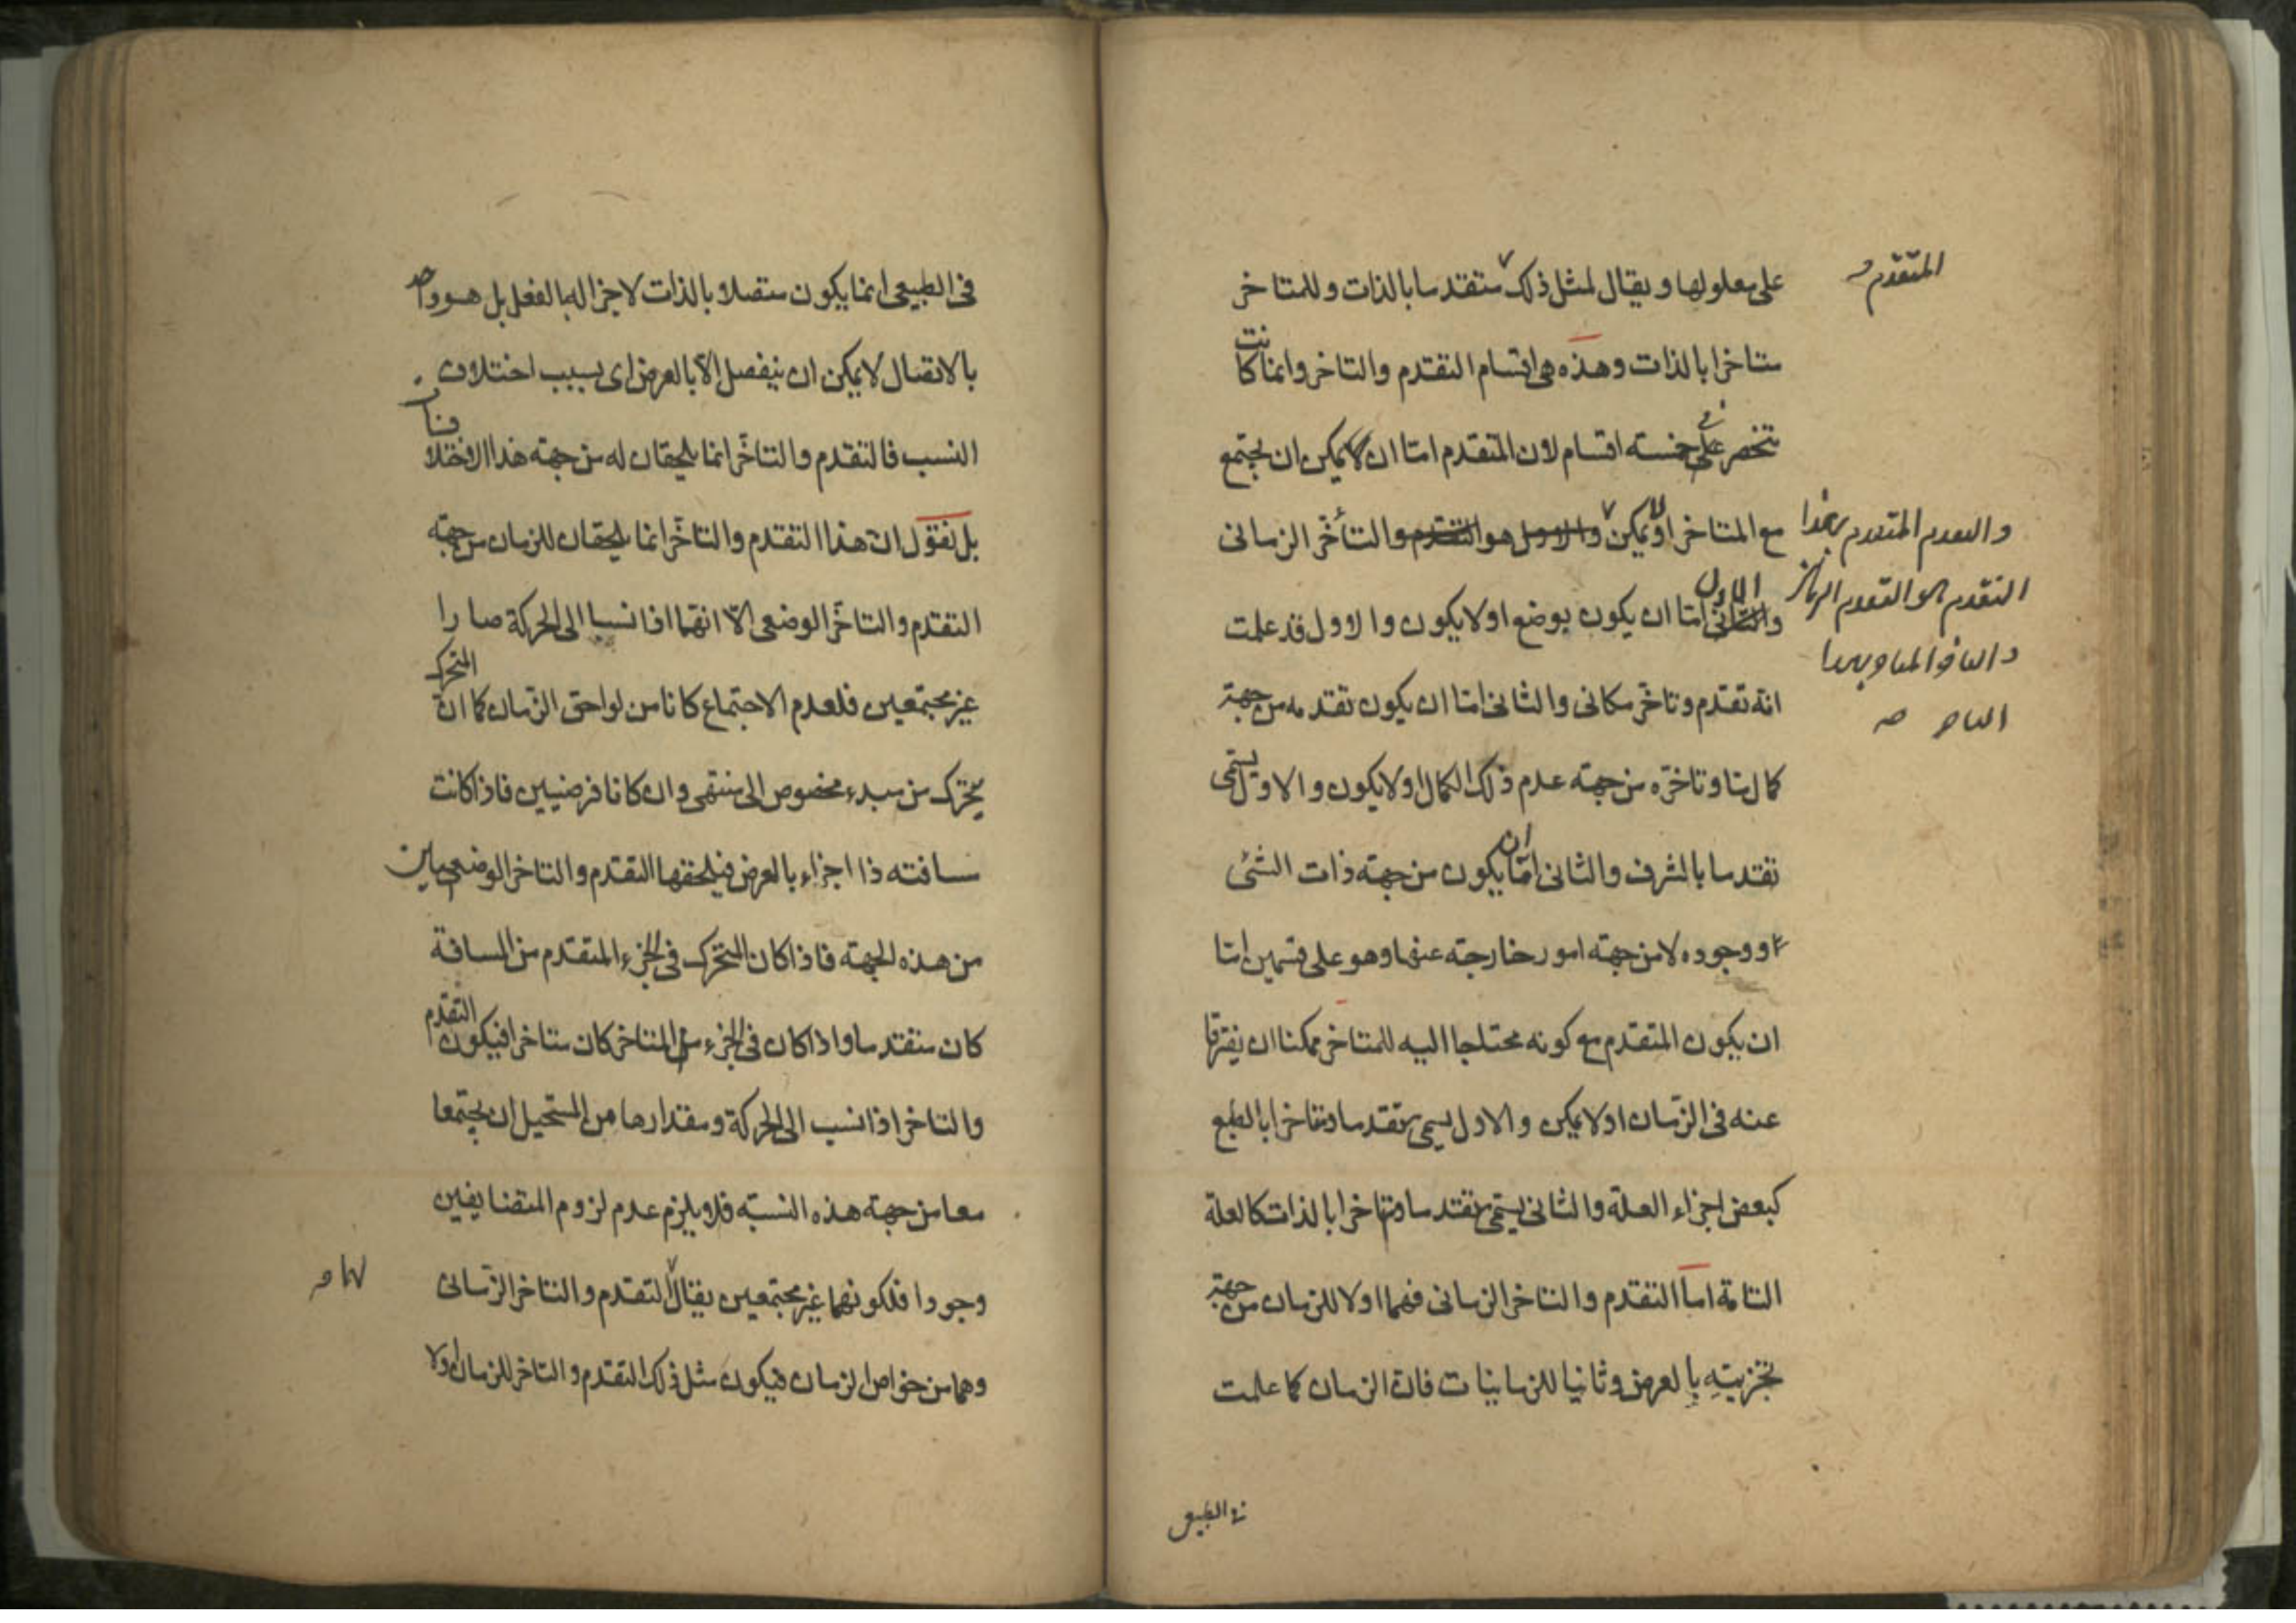 على معلولها ويقال لمثل ذلك متقدما بالذات وللمتاخر
المتقدم
متاخرا بالذات وهذه هى اقسام التقدم والتاخر وانما كانت
تنحصر فى خمسة اقسام لان المتقدم اما ان لا يمكن ان يجتمع
مع المتاخر او يمكن والاول هو التقدم والتأخر الزمانى
والمتقدم بهذا
التقدم هو التقدم الزمانى
والثانى الاول اما ان يكون بوضع او لا يكون والاول قد علمت
انه تقدم وتاخر مكانى والثانى اما ان يكون تقدمه من جهة
كمال ما وتاخره من جهة عدم ذلك الكمال او لا يكون والاول يسمى
تقدما بالشرف والثانى اما ان يكون من جهة ذات الشئ
او وجوده لا من جهة امور خارجة عنها وهو على قسمين اما
ان يكون المتقدم مع كونه محتاجا اليه للمتاخر ممكنا ان يفترقا
عنه فى الزمان او لا يمكن والاول يسمى متقدما ومتاخرا بالطبع
كبعض اجزاء العلة والثانى يسمى متقدما ومتاخرا بالذات كالعلة
التامة اما التقدم والتاخر الزمانى فهما اولا للزمان من جهة
تجزيته بالعرض وثانيا للزمانيات فان الزمان كما علمت
فى الطبيعى
فى الطبيعى انما يكون متصلا بالذات لا جزا له بالفعل بل هو واحد
بالاتصال لا يمكن ان ينفصل الا بالعرض اى بسبب اختلاف
النسب فالتقدم والتاخر انما يلحقان له من جهة هذا الاختلاف
بل نقول ان هذا التقدم والتاخر انما يلحقان للزمان من جهة
التقدم والتاخر الوضعى الا انهما اذا نسبا الى الحركة صارا
غير مجتمعين فلعدم الاجتماع كانا من لواحق الزمان كما ان المتحرك
يتحرك من مبدء مخصوص الى منتهى وان كانا فرضيين فاذا كانت
مسافته ذا اجزاء بالعرض فيلحقها التقدم والتاخر الوضعيين
من هذه الجهة فاذا كان المتحرك فى الجزء المتقدم من المسافة
كان متقدما واذا كان فى الجزء المتاخر كان متاخرا فيكون التقدم
والتاخر اذا نسب الى الحركة ومقدارها من المستحيل ان يجتمعا
معا من جهة هذه النسبة فلا يلزم عدم لزوم المتضايفين
وجودا فلكونهما غير مجتمعين يقال التقدم والتاخر الزمانى
لهما
وهما من خواص الزمان فيكون مثل ذلك التقدم والتاخر للزمان اولا